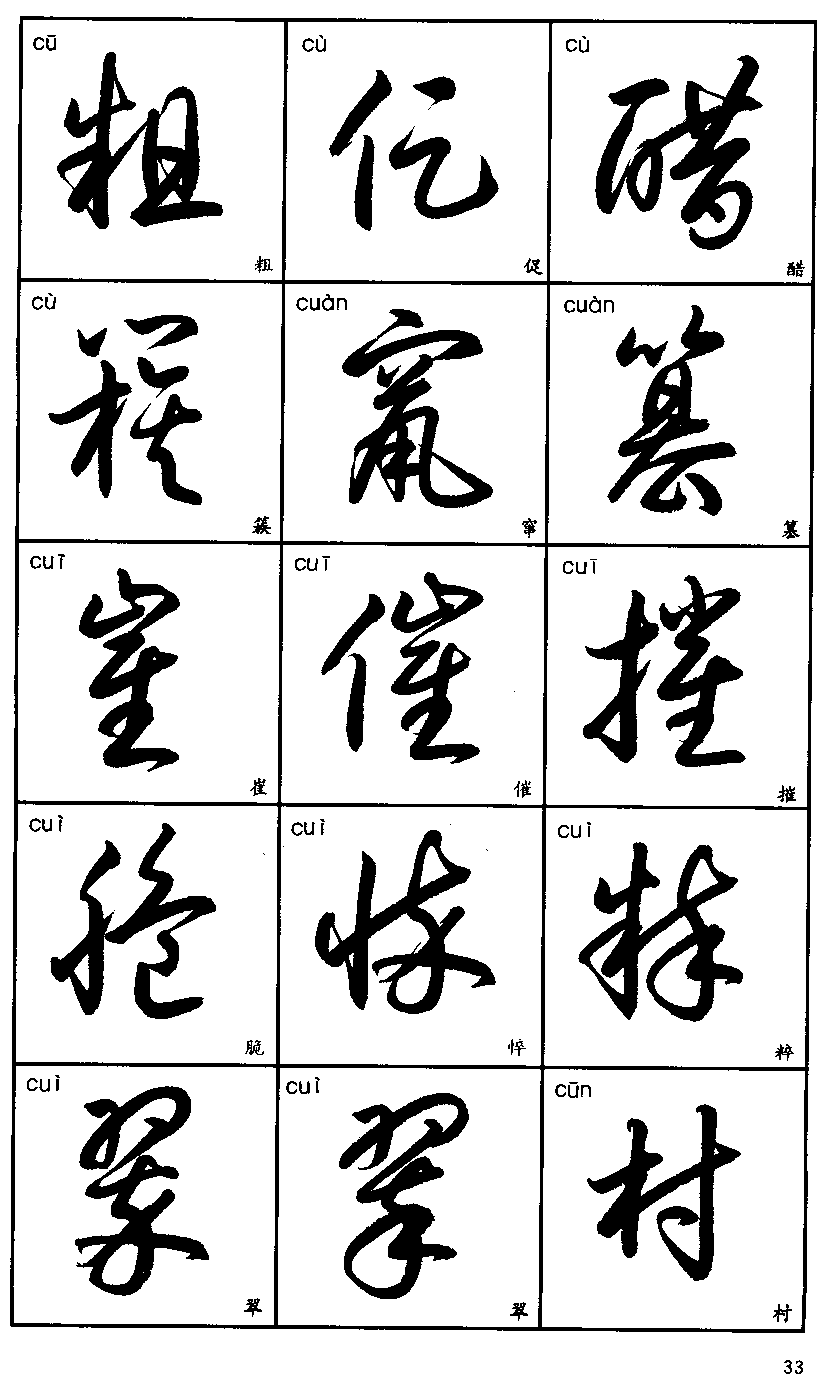 cū cù cù
粗 促 醋
粗 促 醋
cù cuàn cuàn
簇 窜 篡
簇 窜 篡
cuī cuī cuī
崔 催 摧
崔 催 摧
cuì cuì cuì
脆 悴 粹
脆 悴 粹
cuì cuì cūn
翠 翠 村
翠 翠 村
33